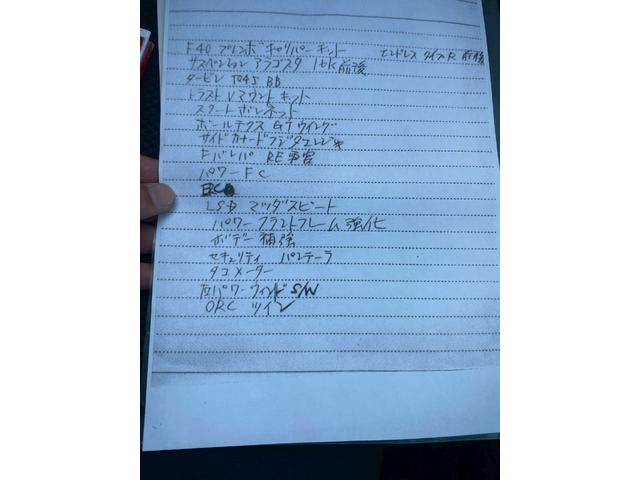 F40 ブレンボ キャリパー キット エンドレス タイプR 前後
サスペンション アラゴスタ 16k 前後
タービン TO4S BB
トラスト Vマウント キット
スクート ボンネット
ボルテクス GTウイング
サイド カナード
Fバンパ RE雨宮
パワーFC
LSD マツダスピード
パワープラントフレーム 強化
ボデー 補強
セキュリティ パンテーラ
タコメーター
パワーウィンド S/W
ORC ツイン